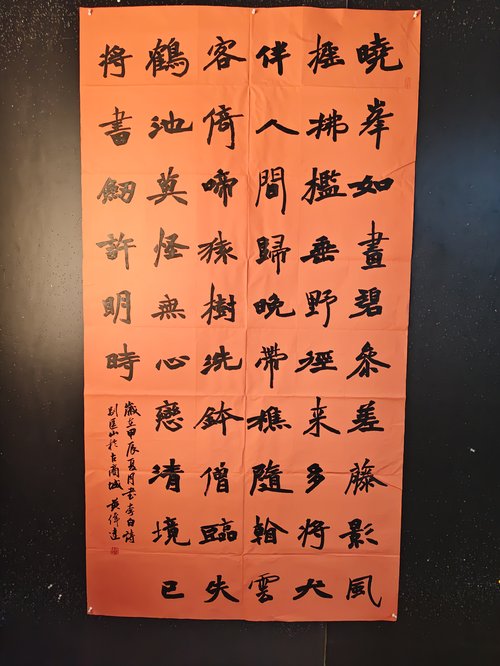 曉峯如畫碧叅差藤影風
摇拂檻垂野徑来多將犬
伴人間歸晚帶樵隨看雲
客倚啼猿樹洗鉢僧臨失
鶴池莫怪無心戀清境已
將書劒許明時
歲在甲辰夏月書李白詩
别匡山於古商城 黄偉達